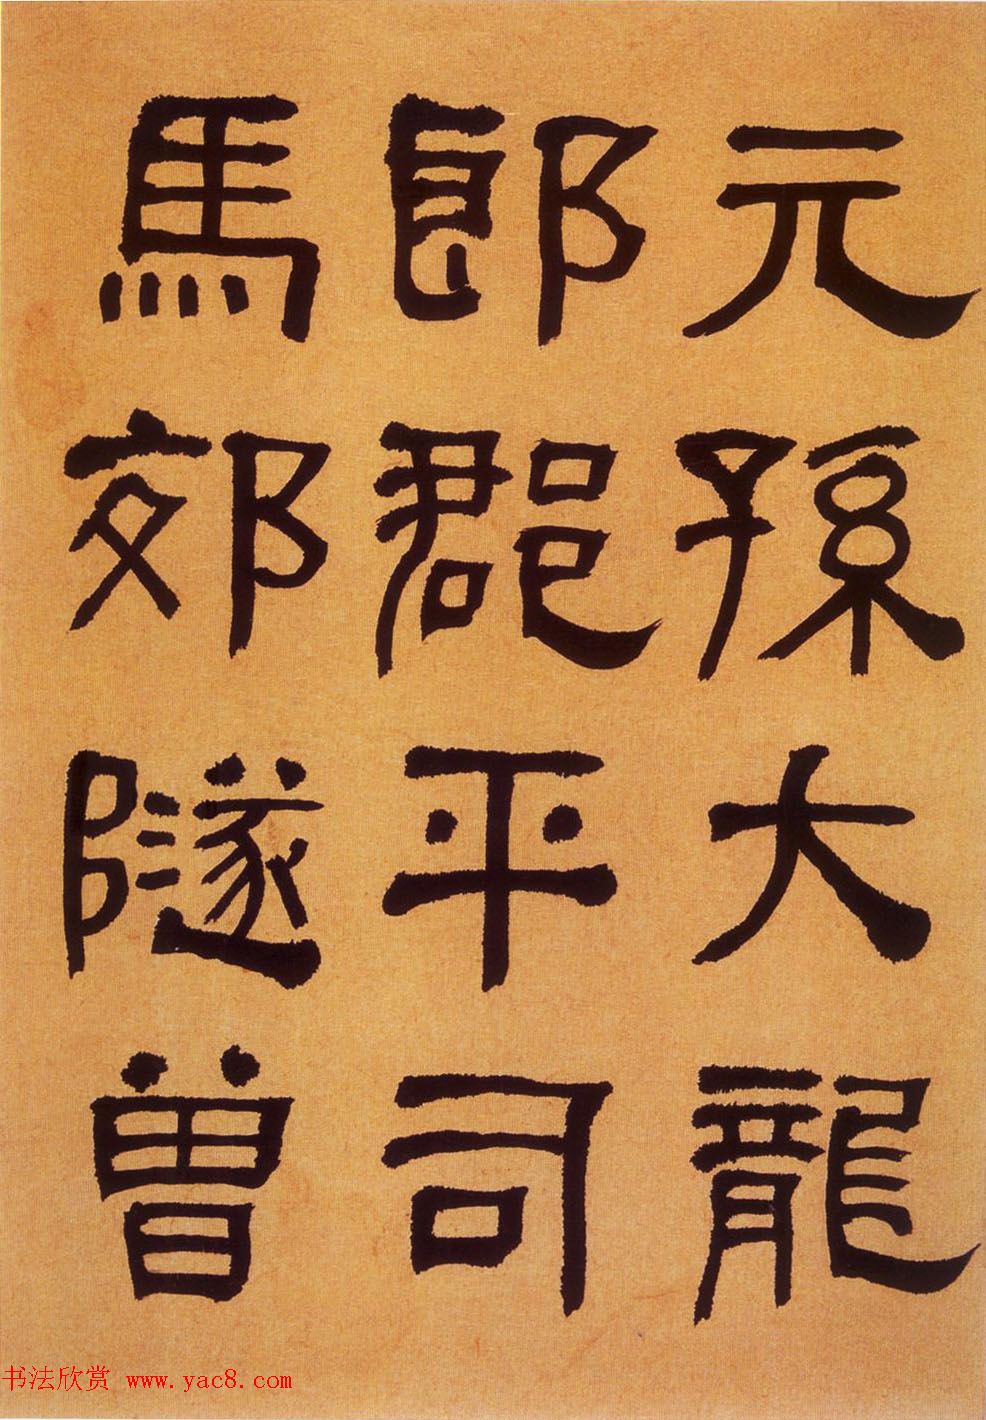 元孫大龍
郎郡平司
馬郊隧曾
书法欣赏 www.yac8.com